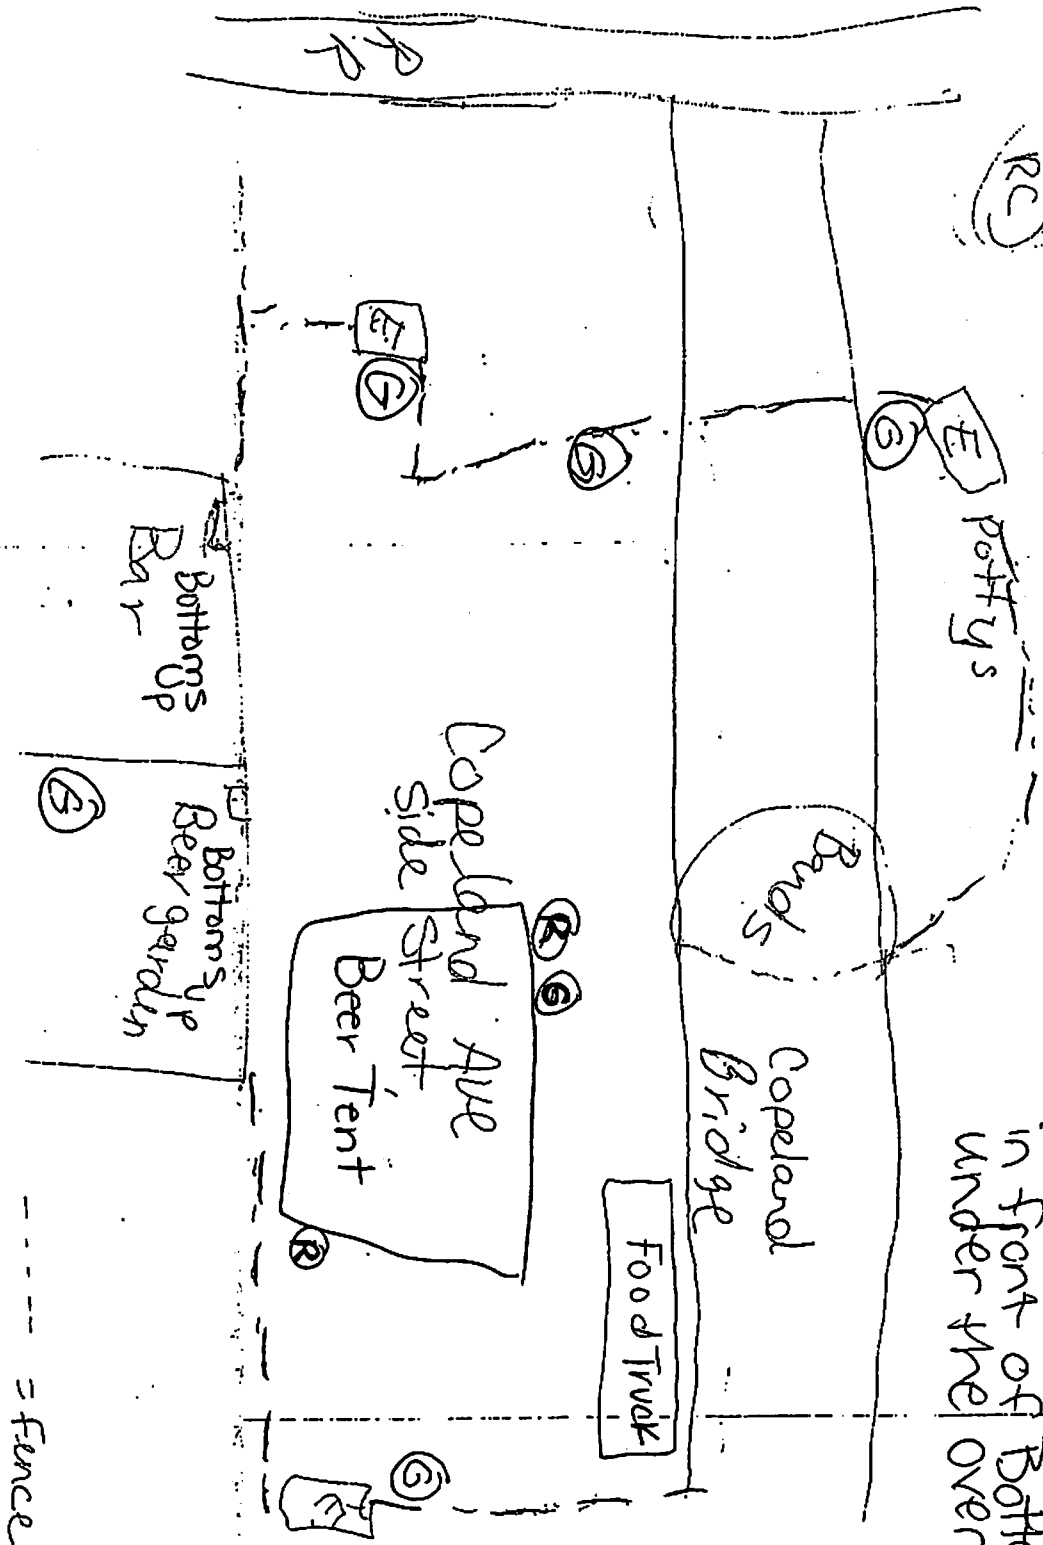 in front of Bott
under the over
RC
R.R
E
G
G
G
E
Pottys
Bands
Copeland
Bridge
Food Truck
Copeland Ave
Side Street
R
G
Beer Tent
R
G
E
Bottoms
Up
Bar
Bottoms up
Beer garden
G
----- = Fence